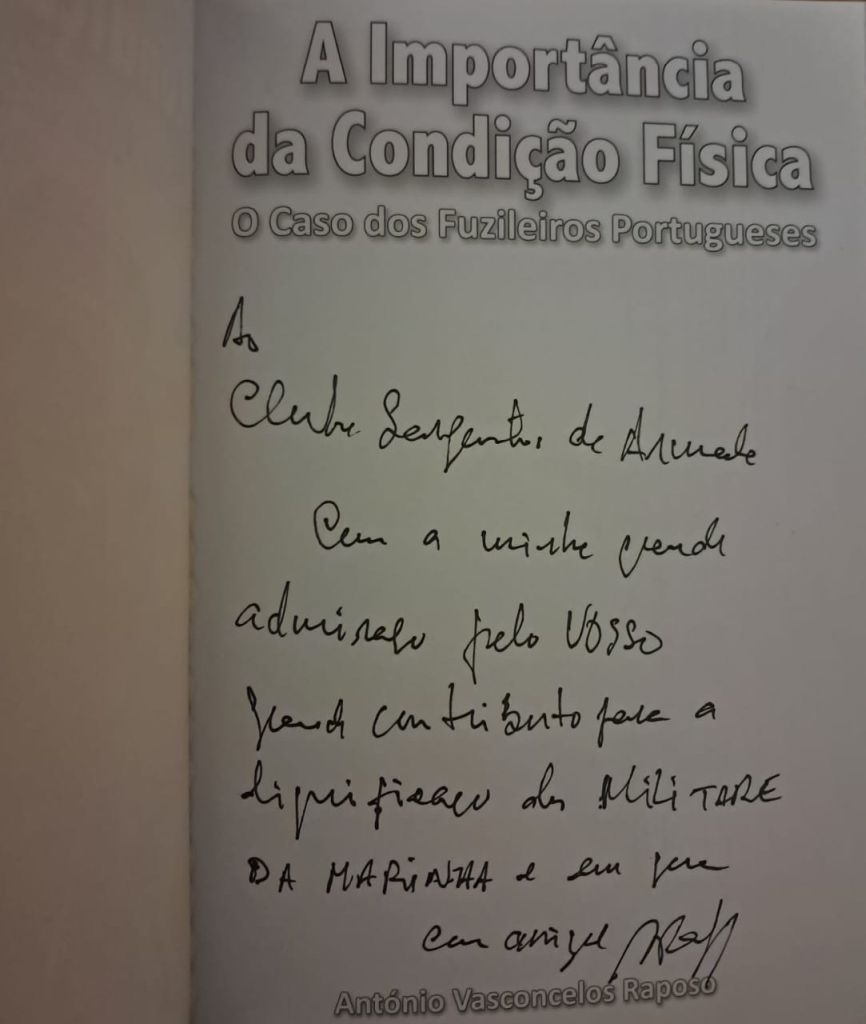 A Importância
da Condição Física
O Caso dos Fuzileiros Portugueses
Ao
Clube Sargentos da Armada
Com a minha grande
admiração pelo VOSSO
grande contributo para a
dignificação dos MILITARE
DA MARINHA e em
com amizade
António Vasconcelos Raposo